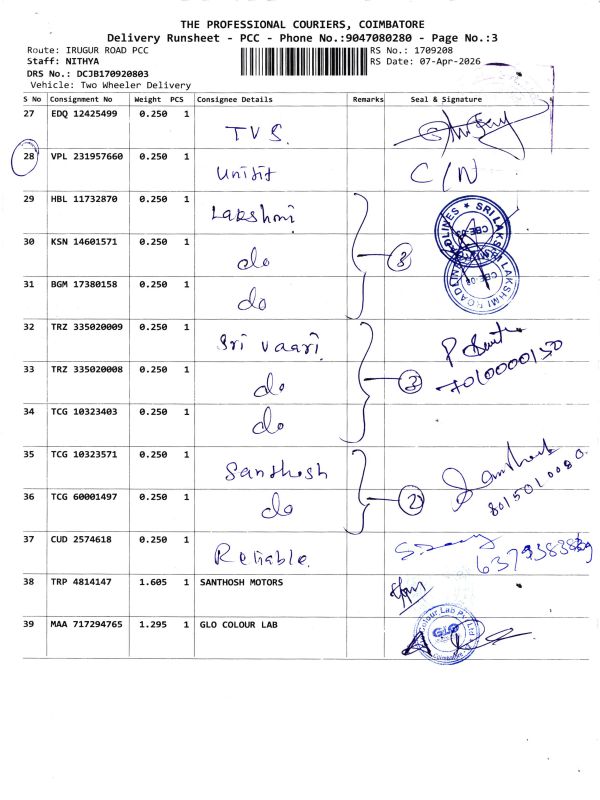 THE PROFESSIONAL COURIERS, COIMBATORE
Delivery Runsheet - PCC - Phone No.:9047080280 - Page No.:3
Route: IRUGUR ROAD PCC RS No.: 1709208
Staff: NITHYA RS Date: 07-Apr-2026
DRS No.: DCJB170920803
Vehicle: Two Wheeler Delivery
S No Consignment No Weight PCS Consignee Details Remarks Seal & Signature
27 EDQ 12425499 0.250 1 TVS.
28 VPL 231957660 0.250 1 Unitit C/N
29 HBL 11732870 0.250 1 Lakshmi
30 KSN 14601571 0.250 1 do 3
31 BGM 17380158 0.250 1 do
32 TRZ 335020009 0.250 1 Sri Vaari
33 TRZ 335020008 0.250 1 do 3 7010000150
34 TCG 10323403 0.250 1 do
35 TCG 10323571 0.250 1 Santhosh Santhosh
36 TCG 60001497 0.250 1 do 2 8015010080
37 CUD 2574618 0.250 1 Reliable.
38 TRP 4814147 1.605 1 SANTHOSH MOTORS
39 MAA 717294765 1.295 1 GLO COLOUR LAB